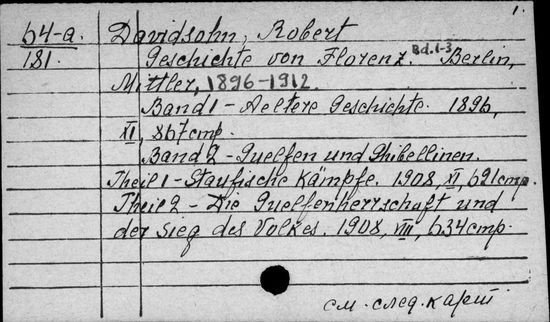 1.
64-a. Davidsohn, Robert
181. Geschichte von Florenz. Bd.1-3 Berlin,
Mittler, 1896-1912.
Band 1 - Aeltere Geschichte. 1896,
XI, 867 стр.
Band 2 - Guelfen und Ghibellinen.
Theil 1 - Staufische Kämpfe. 1908, XI, 621 стр.
Theil 2 - Die Guelfenherrschaft und
der Sieg des Volkes. 1908, VIII, 634 стр.
см. след. карт